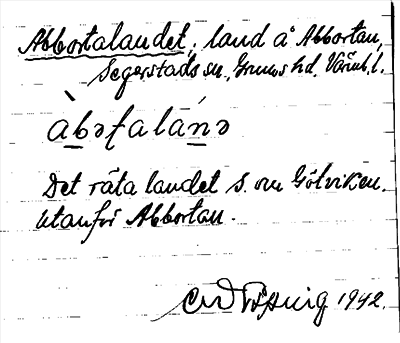 Abbortalandet, land å Abbortan,
Segerstads sn, Grums hd, Värml. l.
àbəṭalánə
Det räta landet s. om Götviken.
utanför Abbortan.
1942.